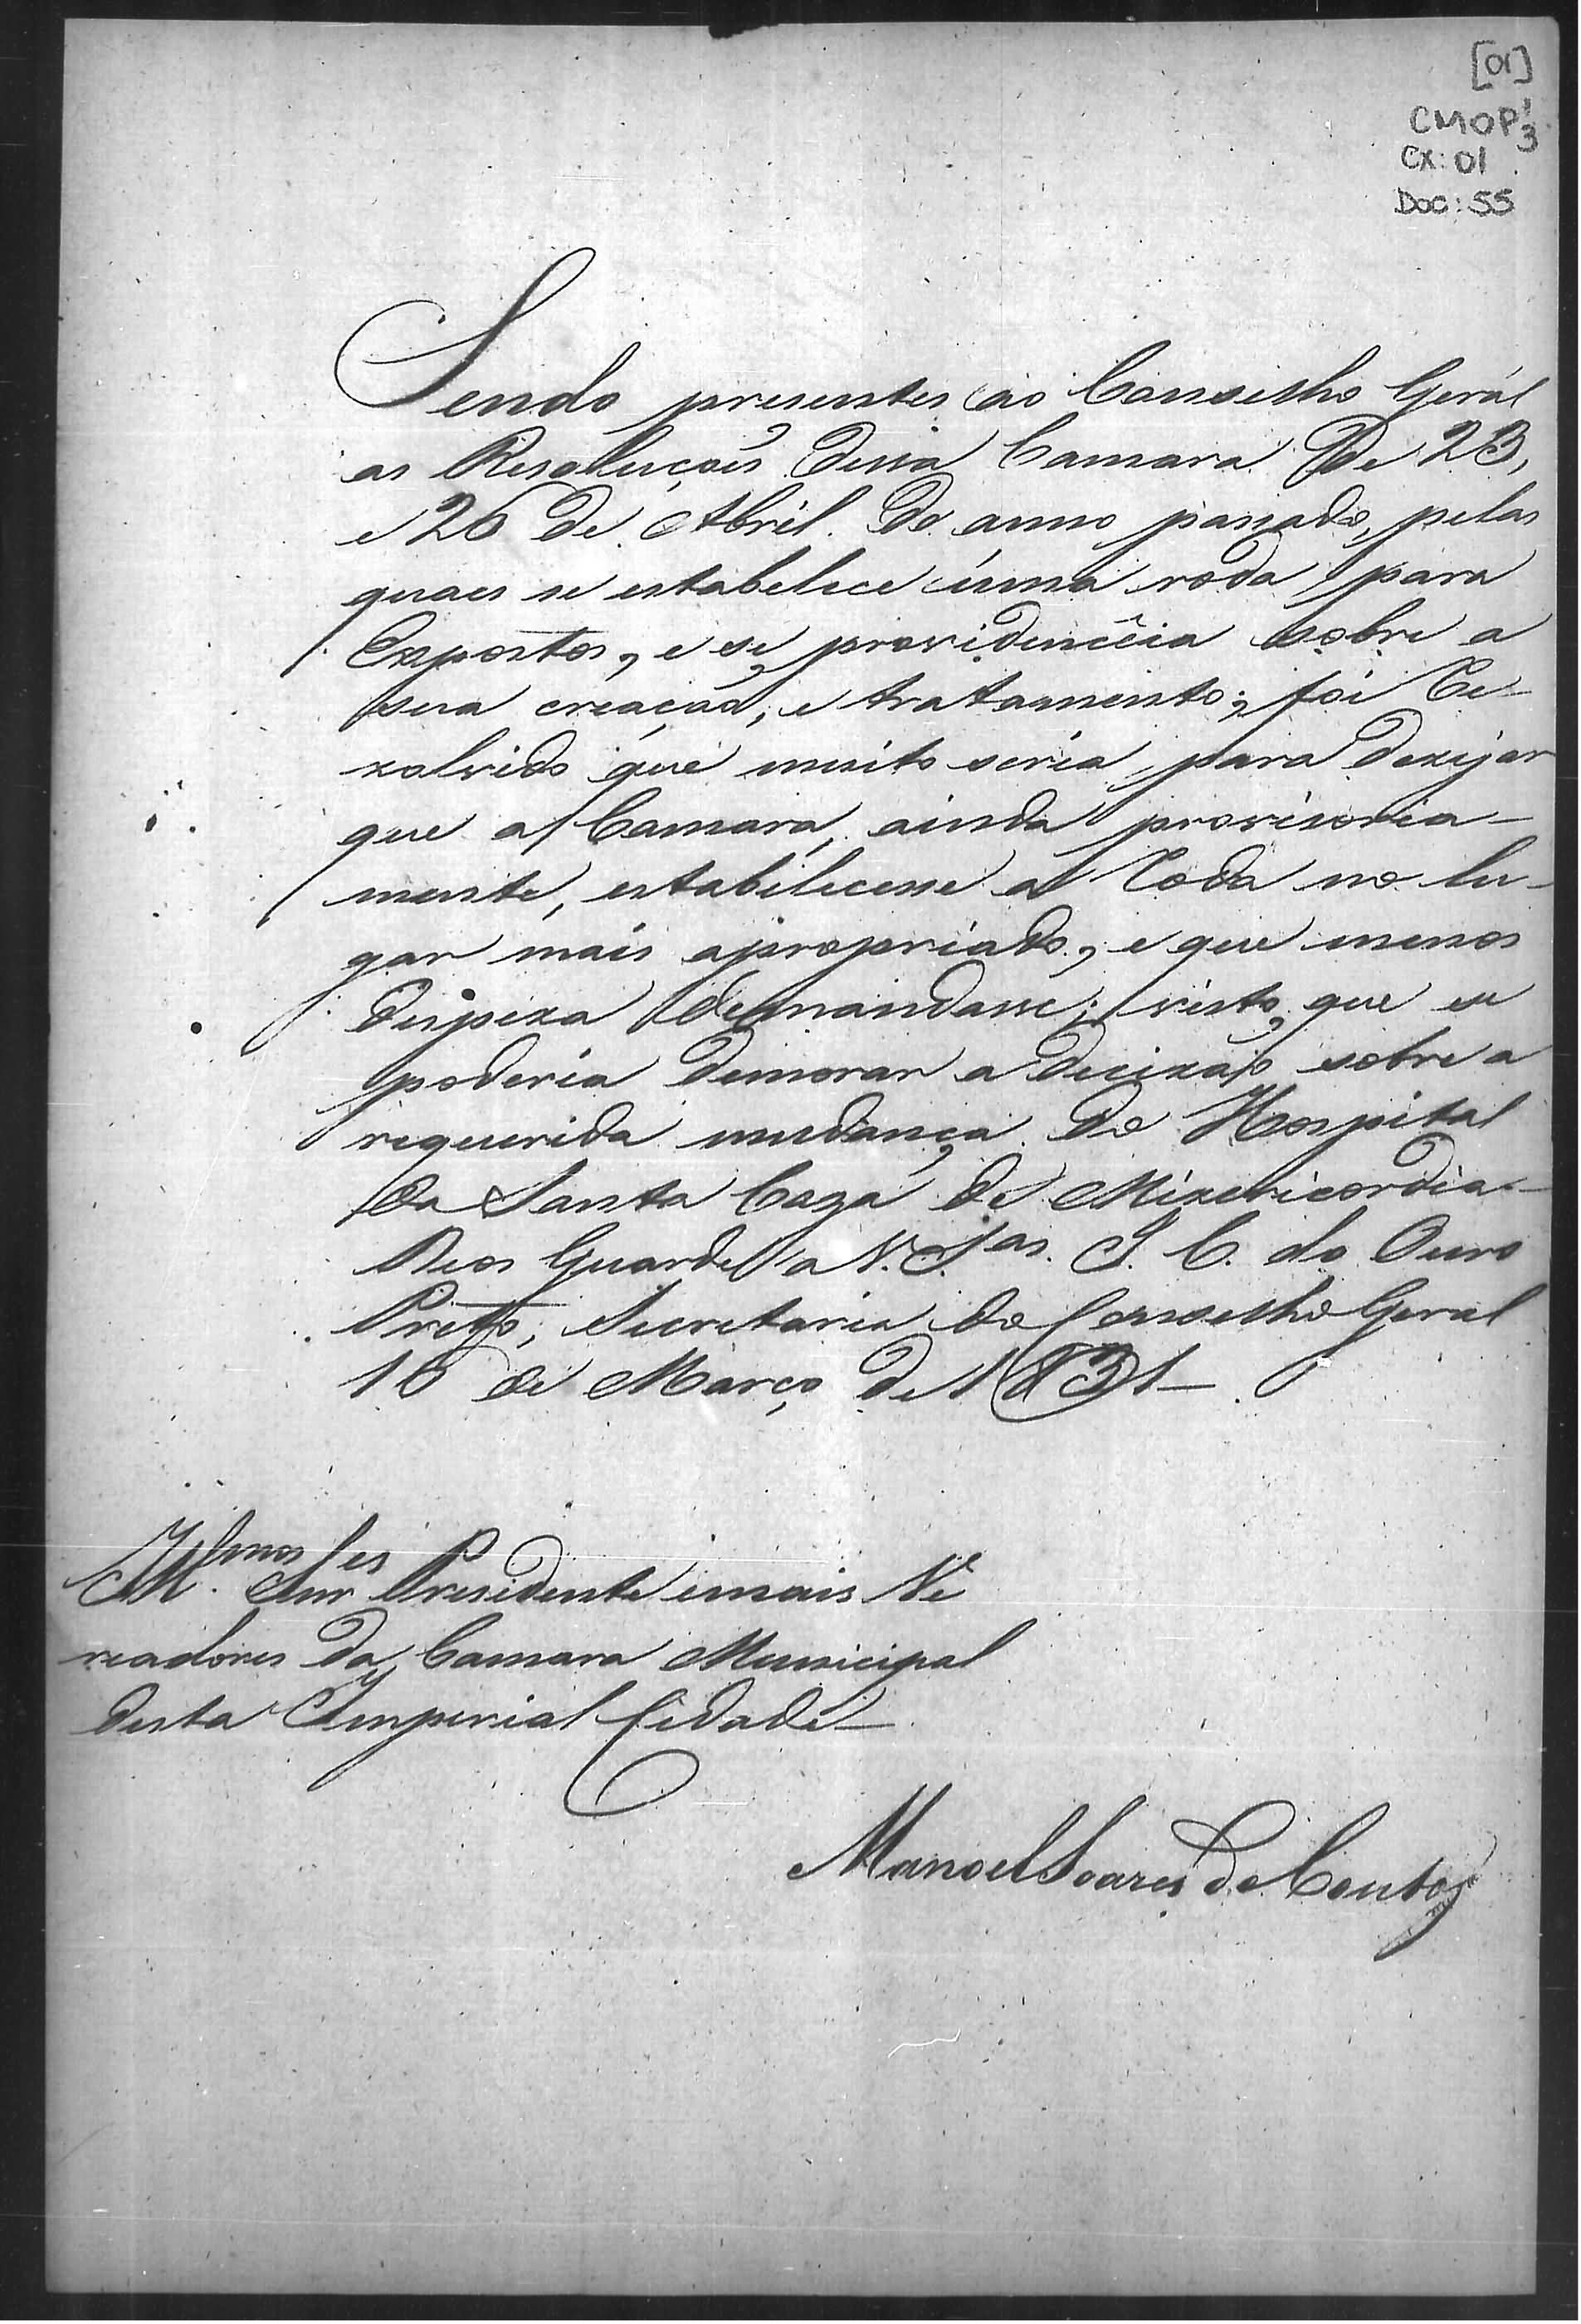 [01]
CMOP 1/3
CX: 01
DOC: 55
Sendo presentes ao Conselho Geral
as Resoluções dessa Camara de 23,
e 26 de Abril do anno passado, pelas
quaes se estabelece uma roda para
Expostos, e se providencia sobre a
sua creação, e tratamento; foi Re-
zolvido que muito seria para dezejar
que a Camara, ainda provisoria-
mente, estabelecesse a Roda no lu-
gar mais apropriado, e que menos
despeza demandasse; visto que se
poderia demorar a decizão sobre a
requerida mudança do Hospital
da Santa Caza de Mizericordia.
Deos Guarde a V. S.as I. C. do Ouro
Preto, Secretaria do Conselho Geral
16 de Março de 1831
Illmos Snres Presidente e mais Ve
readores da Camara Municipal
desta Imperial Cidade
Manoel Soares do Couto